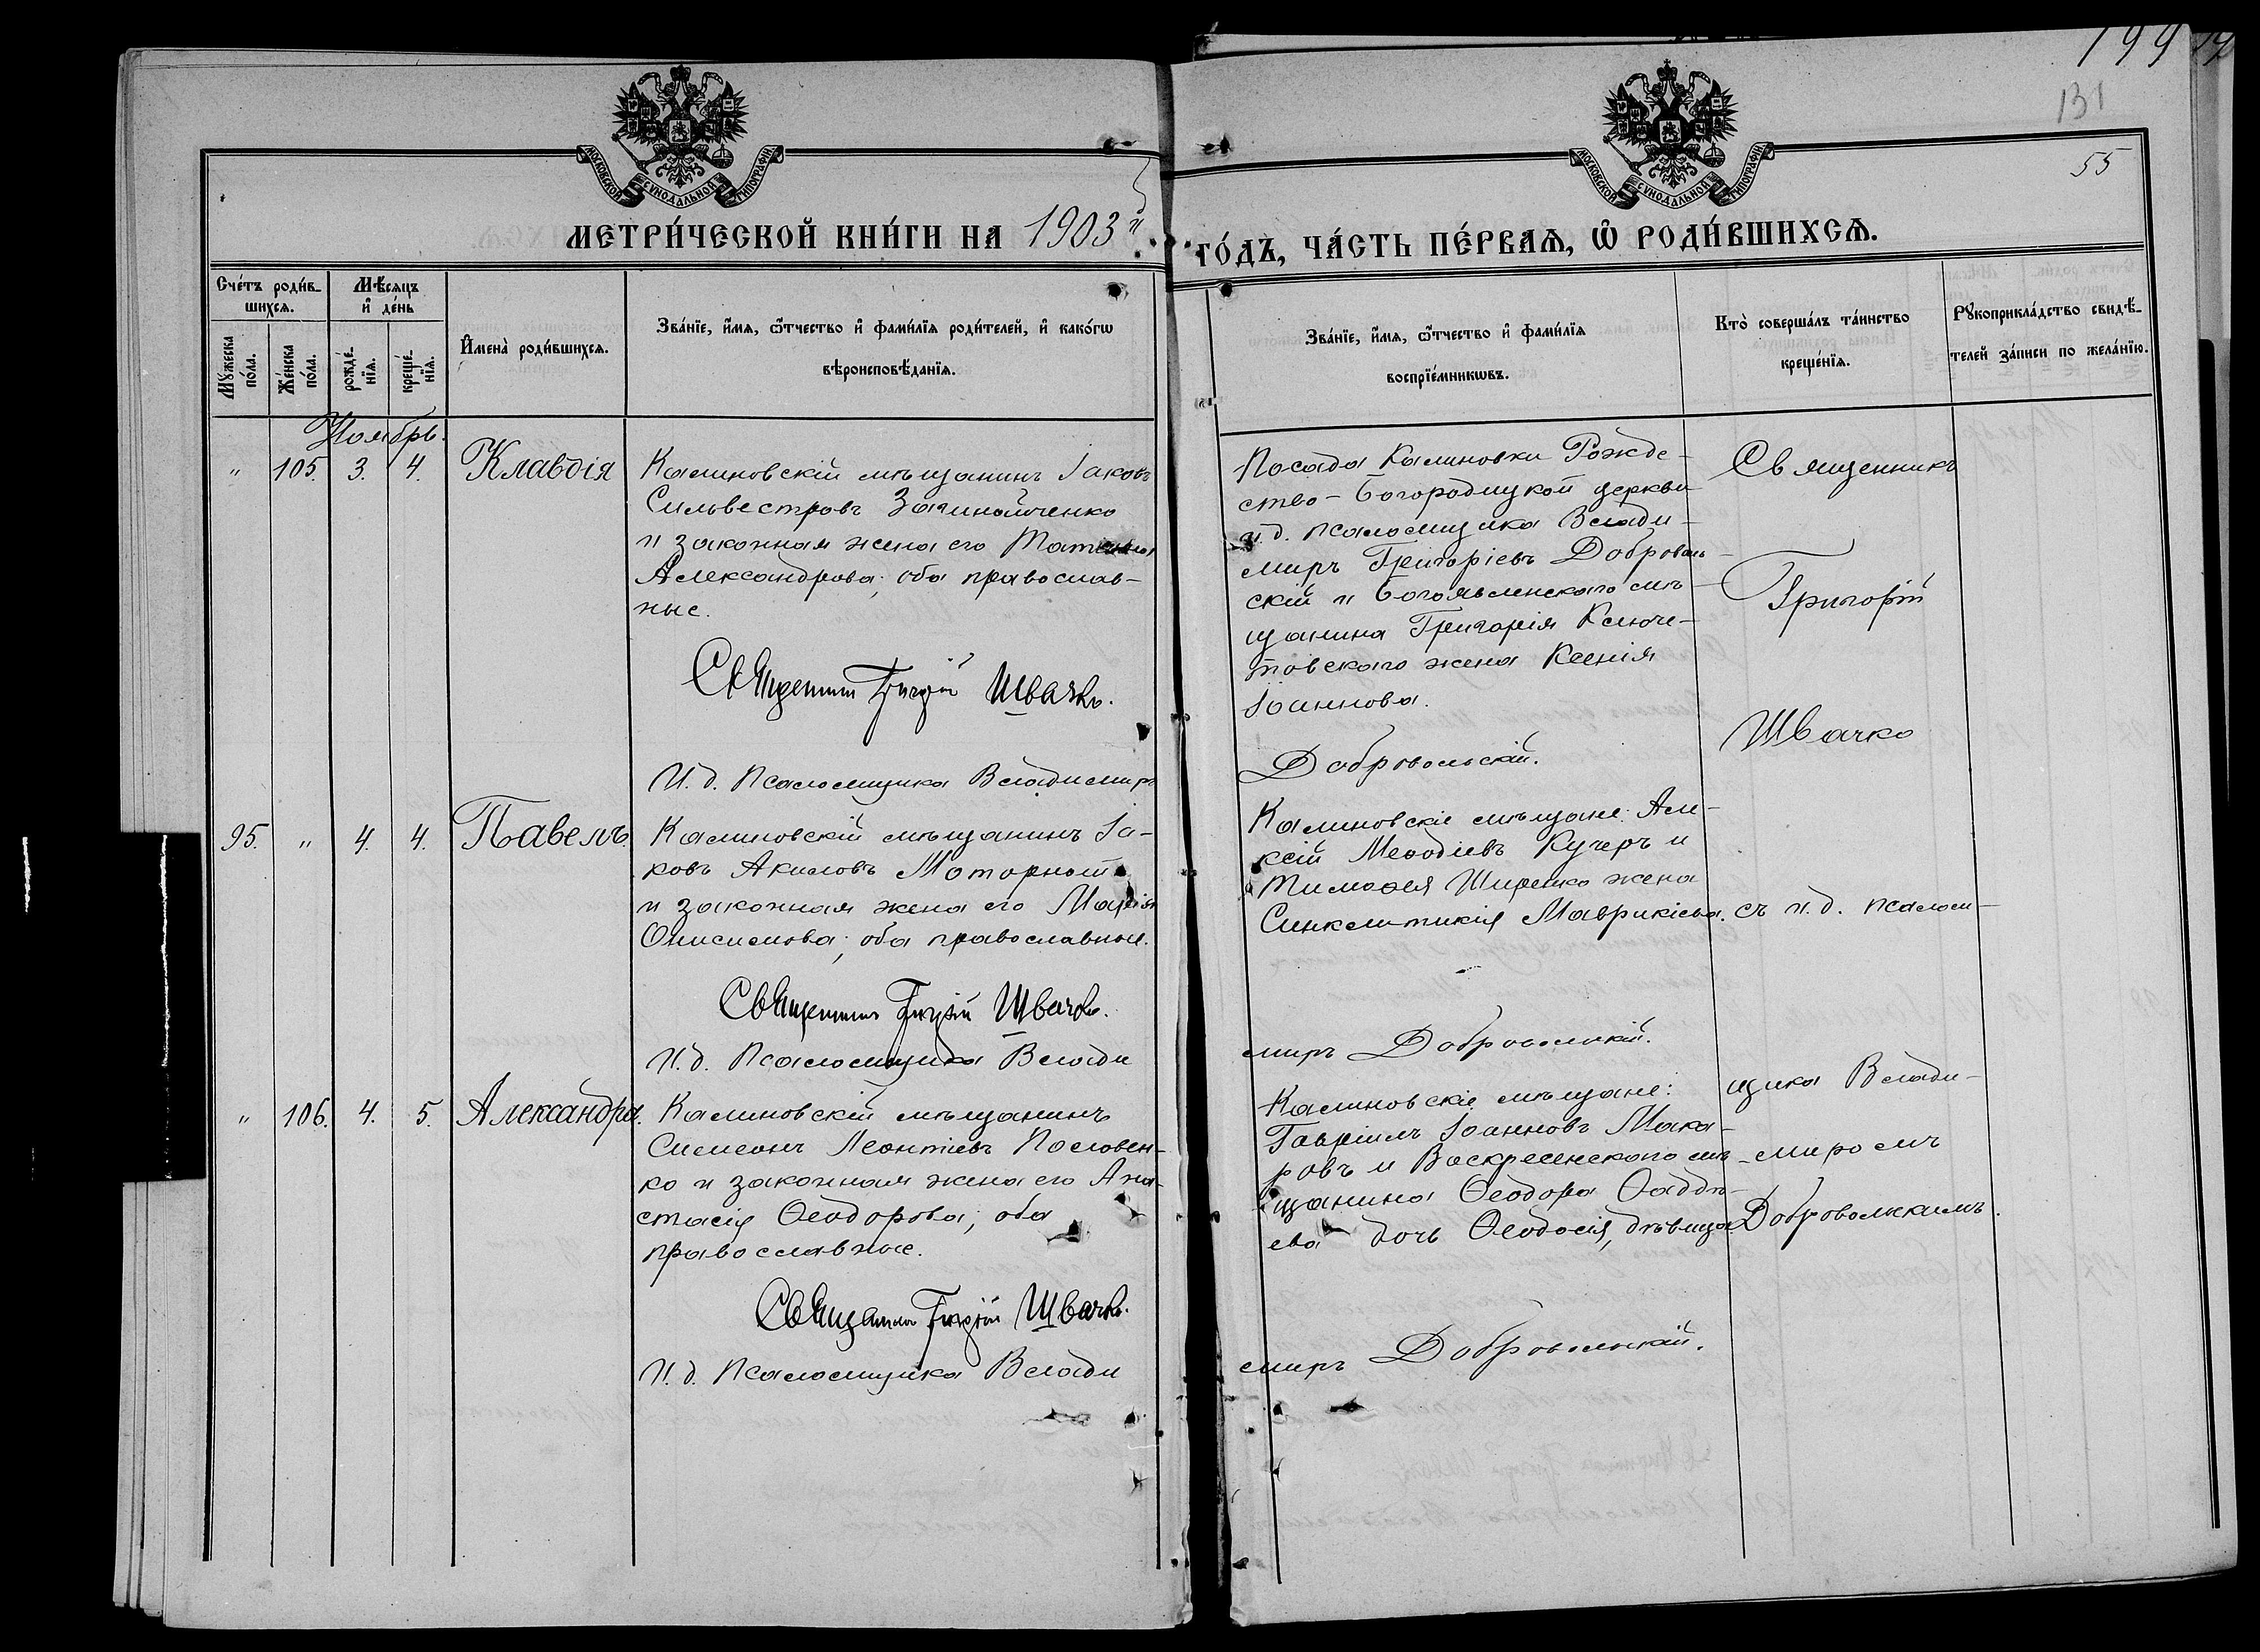 199
131
55
МОСКОВСКОЙ СѴНОДАЛЬНОЙ ТИПОГРАФІИ
МОСКОВСКОЙ СѴНОДАЛЬНОЙ ТИПОГРАФІИ
МЕТРИ́ЧЕСКОЙ КНИ́ГИ НА 1903й
го́дъ, ча́сть пе́рваѧ, ѡ҆ роди́вшихсѧ.
Сче́тъ роди́в-
шихсѧ.
Мꙋ́жеска по́ла.
Же́нска по́ла.
Мѣ́сѧцъ и҆ де́нь
рожде́-нїѧ.
креще́-нїѧ.
И҆мена̀ роди́вшихсѧ.
Зва́нїе, и҆́мѧ, ѻ҆́тчество и҆ фами́лїѧ роди́телей, и҆ како́гѡ
вѣроисповѣ́данїѧ.
Зва́нїе, и҆́мѧ, ѻ҆́тчество и҆ фами́лїѧ
воспрїе́мникѡвъ.
Кто̀ соверша́лъ та́инство
креще́нїѧ.
Рꙋкоприкла́дство свидѣ́-
телей за́писи по жела́нїю.
Ноябрь.
" 105. 3. 4. Клавдія
Калиновскій мѣщанинъ Іаковъ
Сильвестровъ
и законная жена его Татіана
Александрова; оба православ-
ные.
Священникъ Григорій Швачко.
И. д. Псаломщика Владимиръ
Посада Калиновки Рожде-
ство-Богородицкой церкви
и. д. псаломщика Влади-
миръ Григоріевъ Доброволь-
скій и Богоявленскаго мѣ-
щанина Григорія Ключе-
товскаго жена Ксенія
Іоаннова.
Добровольскій.
Священникъ
Григорій
Швачко
95. " 4. 4. Павелъ.
Калиновскій мѣщанинъ Іа-
ковъ Акиловъ Моторный
и законная жена его Марія
Онисимова; оба православные.
Священникъ Григорій Швачко.
И. д. Псаломщика Влади
Калиновскіе мѣщане: Але-
ксій Меѳодіевъ Кучеръ и
Тимоѳея Ширенко жена
Синклитикія Маврикіева.
миръ Добровольскій.
съ и. д. псалом-
" 106. 4. 5. Александра.
Калиновскій мѣщанинъ
Симеонъ Леонтіевъ Половен-
ко и законная жена его Ана-
стасія Ѳеодорова; оба
православные.
Священникъ Григорій Швачко.
И. д. Псаломщика Влади
Калиновскіе мѣщане:
Гавріилъ Іоанновъ Мака-
ровъ и Воскресенскаго мѣ-
щанина Ѳеодора Ѳадде-
ева дочь Ѳеодосія, дѣвица.
миръ Добровольскій.
щика Влади-
миромъ
Добровольскимъ.